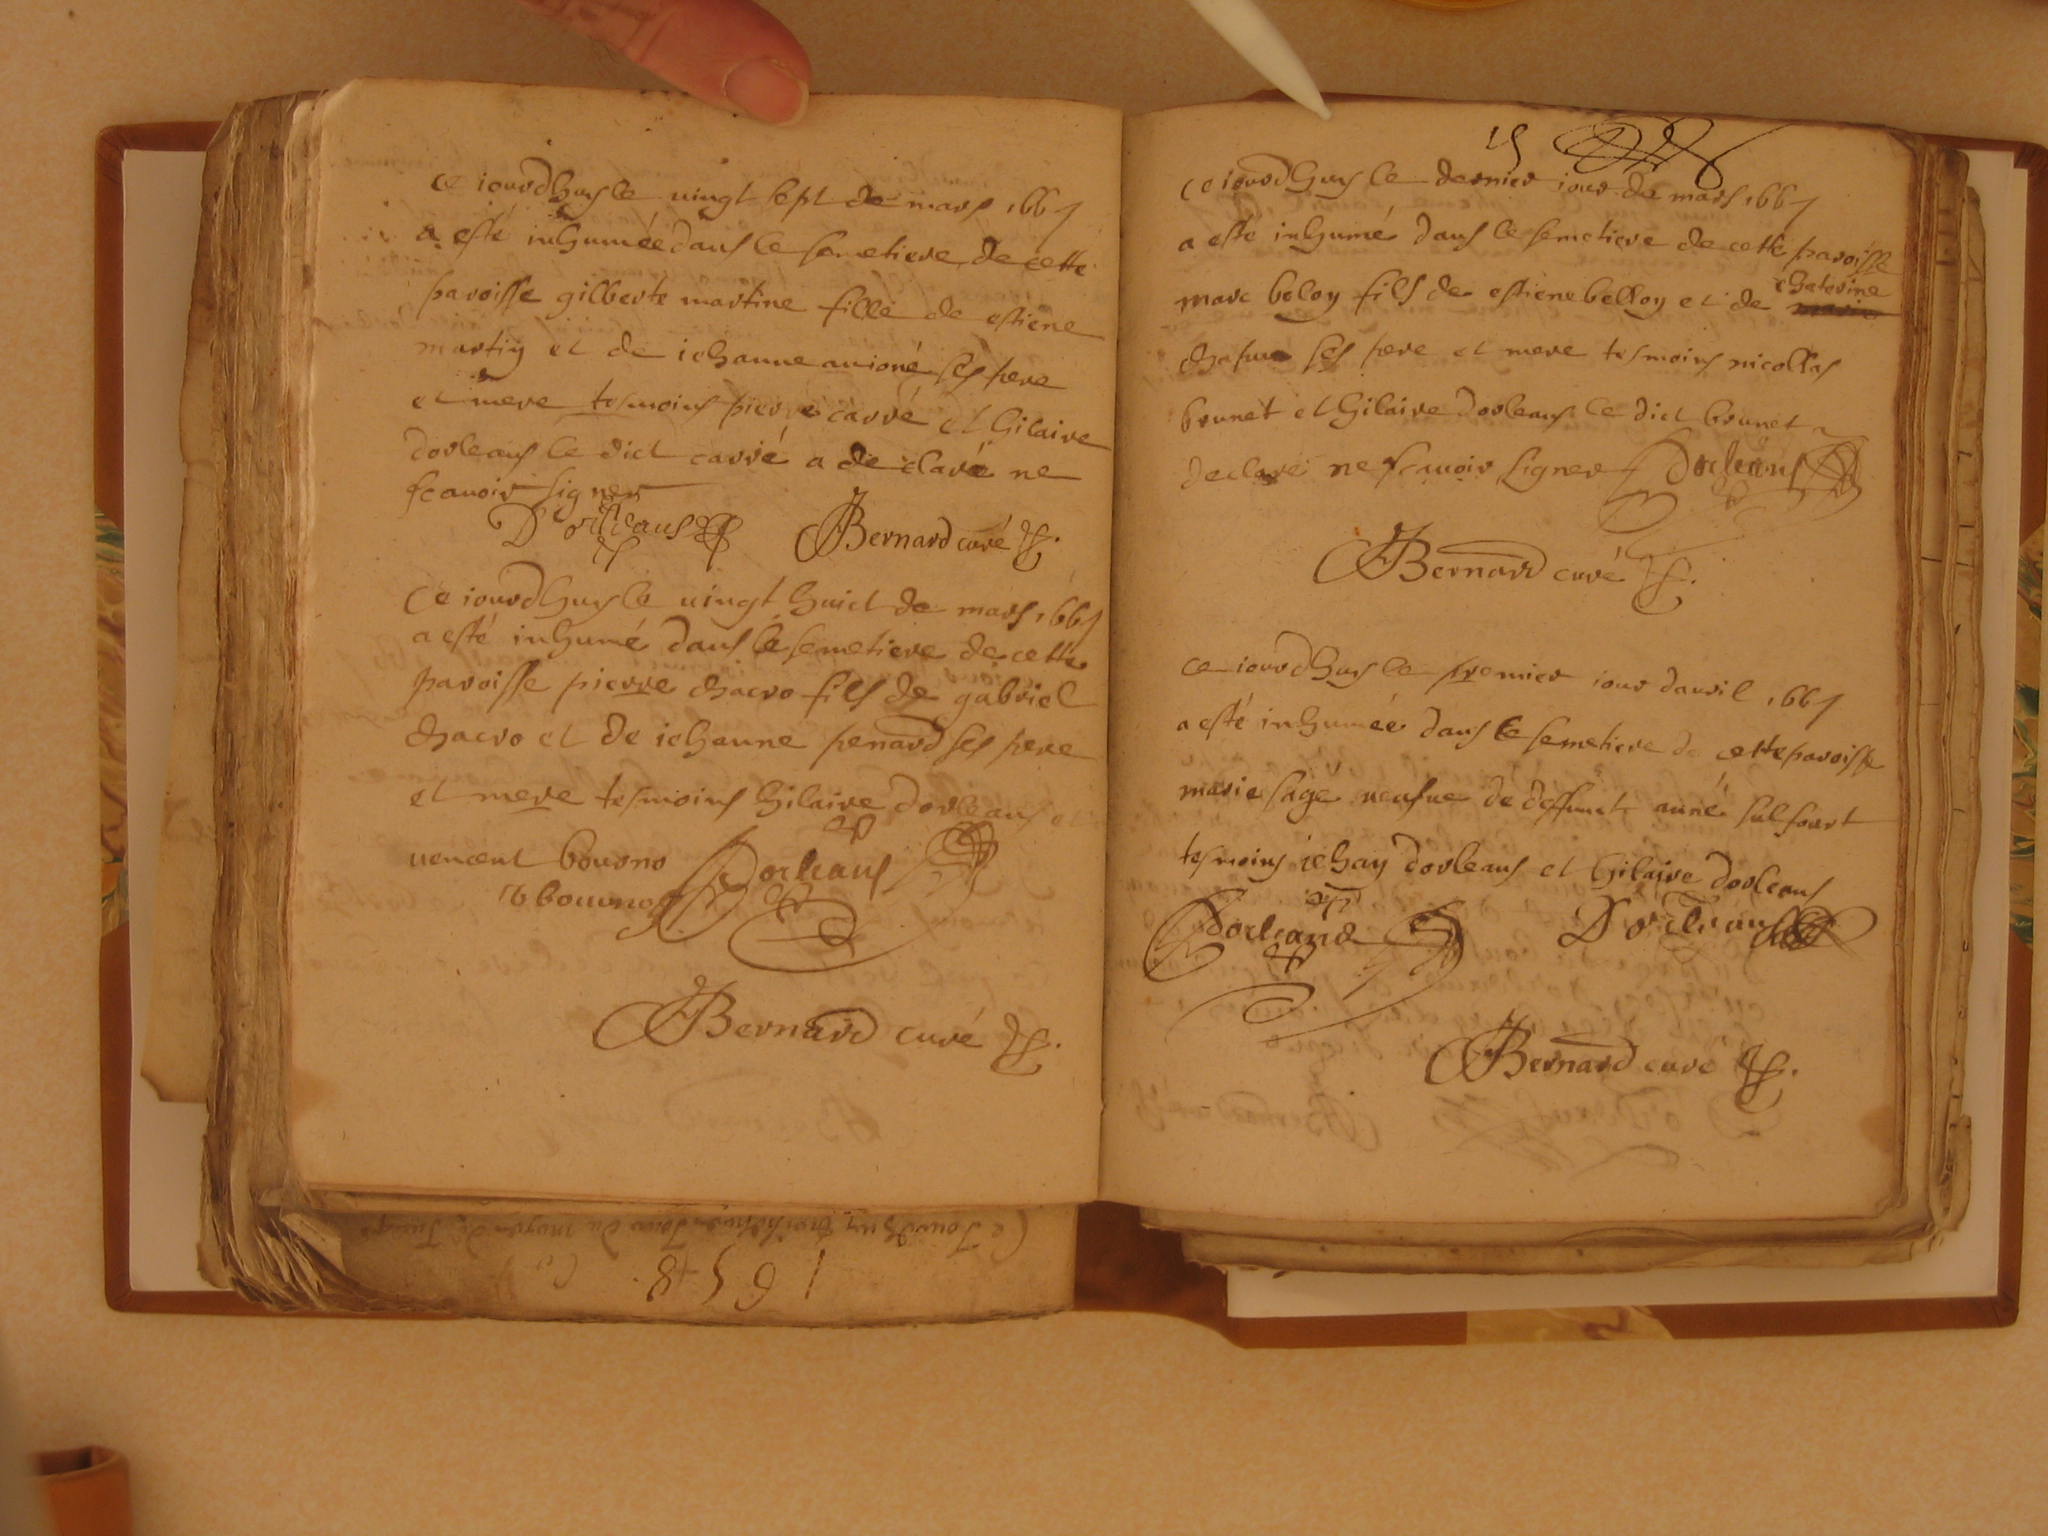 ce iourdhuy le uingt sept de mars 1667
a esté inhumée dans le semetiere de cette
paroisse gilberte martine fille de estiene
martin et de iehanne auioné ses pere
et mere tesmoins pierre carré et hilaire
dorleans le dict carré a declaré ne
scauoir signer
Dorleans Bernard curé
Ce iourdhuy le uingt huict de mars 1667
a esté inhumé dans le semetiere de cette
paroisse pierre chacro fils de gabriel
chacro et de iehanne penard ses pere
et mere tesmoins hilaire dorleans et
uencent bourno Dorleans
bourno
Bernard curé
15
ce iourdhuy le dernier iour de mars 1667
a esté inhumé dans le semetiere de cette paroisse
marc beloy fils de estiene belloy et de chaterine
ses pere et mere tesmoins nicollas
brunet et hilaire dorleans le dict brunet a
declaré ne scauoir signer Dorleans
Bernard curé
ce iourdhuy le premier iour dauril 1667
a esté inhumée dans le semetiere de cette paroisse
marie sage neufue de deffunct
tesmoins iehan dorleans et hilaire dorleans
Dorleans Dorleans
Bernard curé
Ce Jourdhuy Jour du moys de
1658